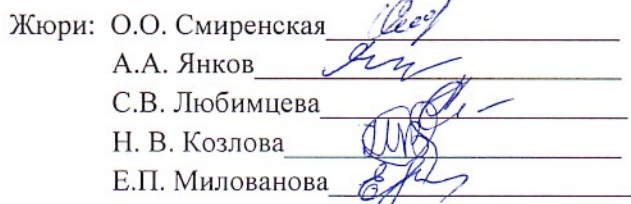 Жюри: О.О. Смиренская
А.А. Янков
С.В. Любимцева
Н. В. Козлова
Е.П. Милованова